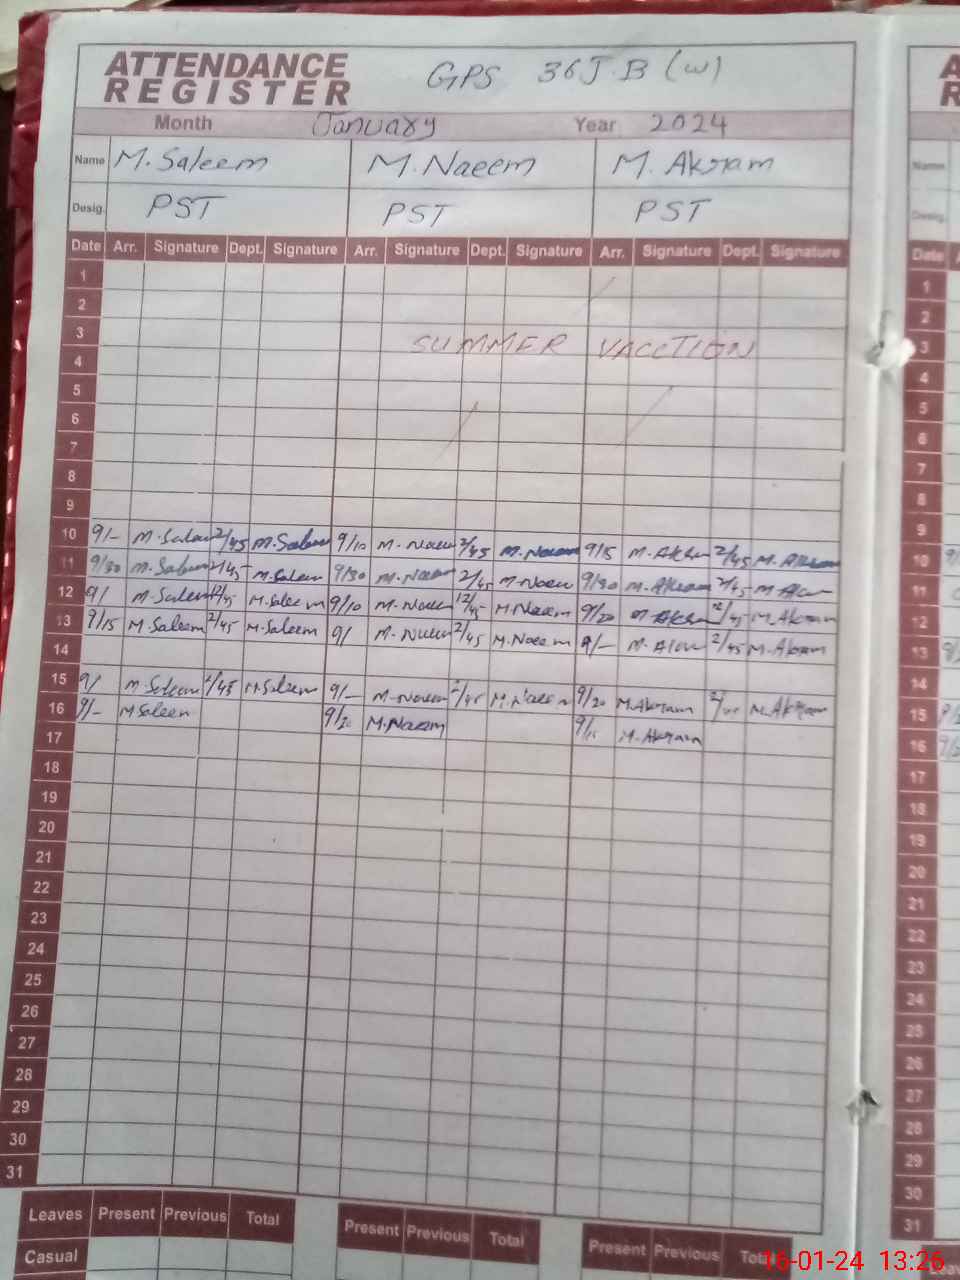 ATTENDANCE REGISTER GPS 36 J.B (W)
Month January Year 2024
Name M.Saleem M.Naeem M.Akram
Desig. PST PST PST
Date Arr. Signature Dept. Signature Arr. Signature Dept. Signature Arr. Signature Dept. Signature
1
2
3 SUMMER VACCTION
4
5
6
7
8
9
10 9/- M.Saleem 2/45 M.Saleem 9/10 M.Naeem 2/45 M.Naeem 9/15 M.Akram 2/45 M.Akram
11 9/30 M.Saleem 2/45 M.Saleem 9/30 M.Naeem 2/45 M.Naeem 9/30 M.Akram 2/45 M.Akram
12 9/ M.Saleem 12/45 M.Saleem 9/10 M.Naeem 12/45 M.Naeem 9/20 M.Akram 12/45 M.Akram
13 9/15 M.Saleem 2/45 M.Saleem 9/ M.Naeem 2/45 M.Naeem 9/- M.Akram 2/45 M.Akram
14
15 9/ M.Saleem 2/45 M.Saleem 9/- M.Naeem 2/45 M.Naeem 9/20 M.Akram M.Akram
16 9/- M.Saleem 9/20 M.Naeem 9/15 M.Akram
17
18
19
20
21
22
23
24
25
26
27
28
29
30
31
Leaves Present Previous Total Present Previous Total Present Previous Total
Casual
16-01-24 13:26
Name
Desig.
Date
1
2
3
4
5
6
7
8
9
10
11
12
13
14
15
16
17
18
19
20
21
22
23
24
25
26
27
28
29
30
31